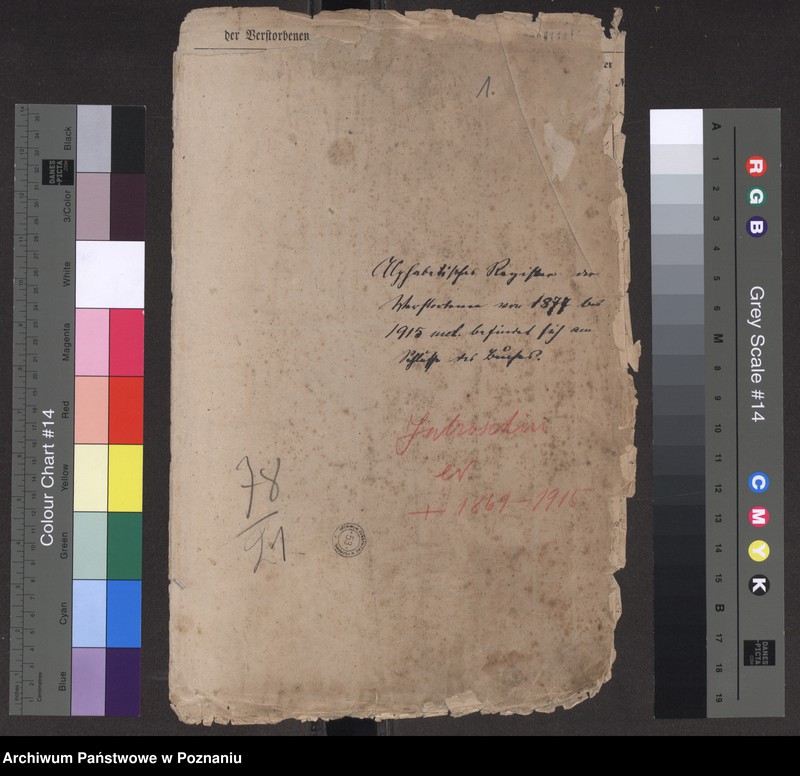 der Verstorbenen
1.
Alphabetisches Register der
Verstorbenen von 1877 bis
1915 incl. befindet sich am
Schlusse des Buches.
Jutroschin
ev
+ 1869–1916
78
21
53
Colour Chart #14
Black
3/Color
White
Magenta
Red
Yellow
Green
Cyan
Blue
Inches
Centimetres
DANES
-PICTA
.COM
Grey Scale #14
A
1
2
3
4
5
6
M
8
9
10
11
12
13
14
15
B
17
18
19
R
G
B
C
M
Y
K
DANES
-PICTA
.COM
Archiwum Państwowe w Poznaniu